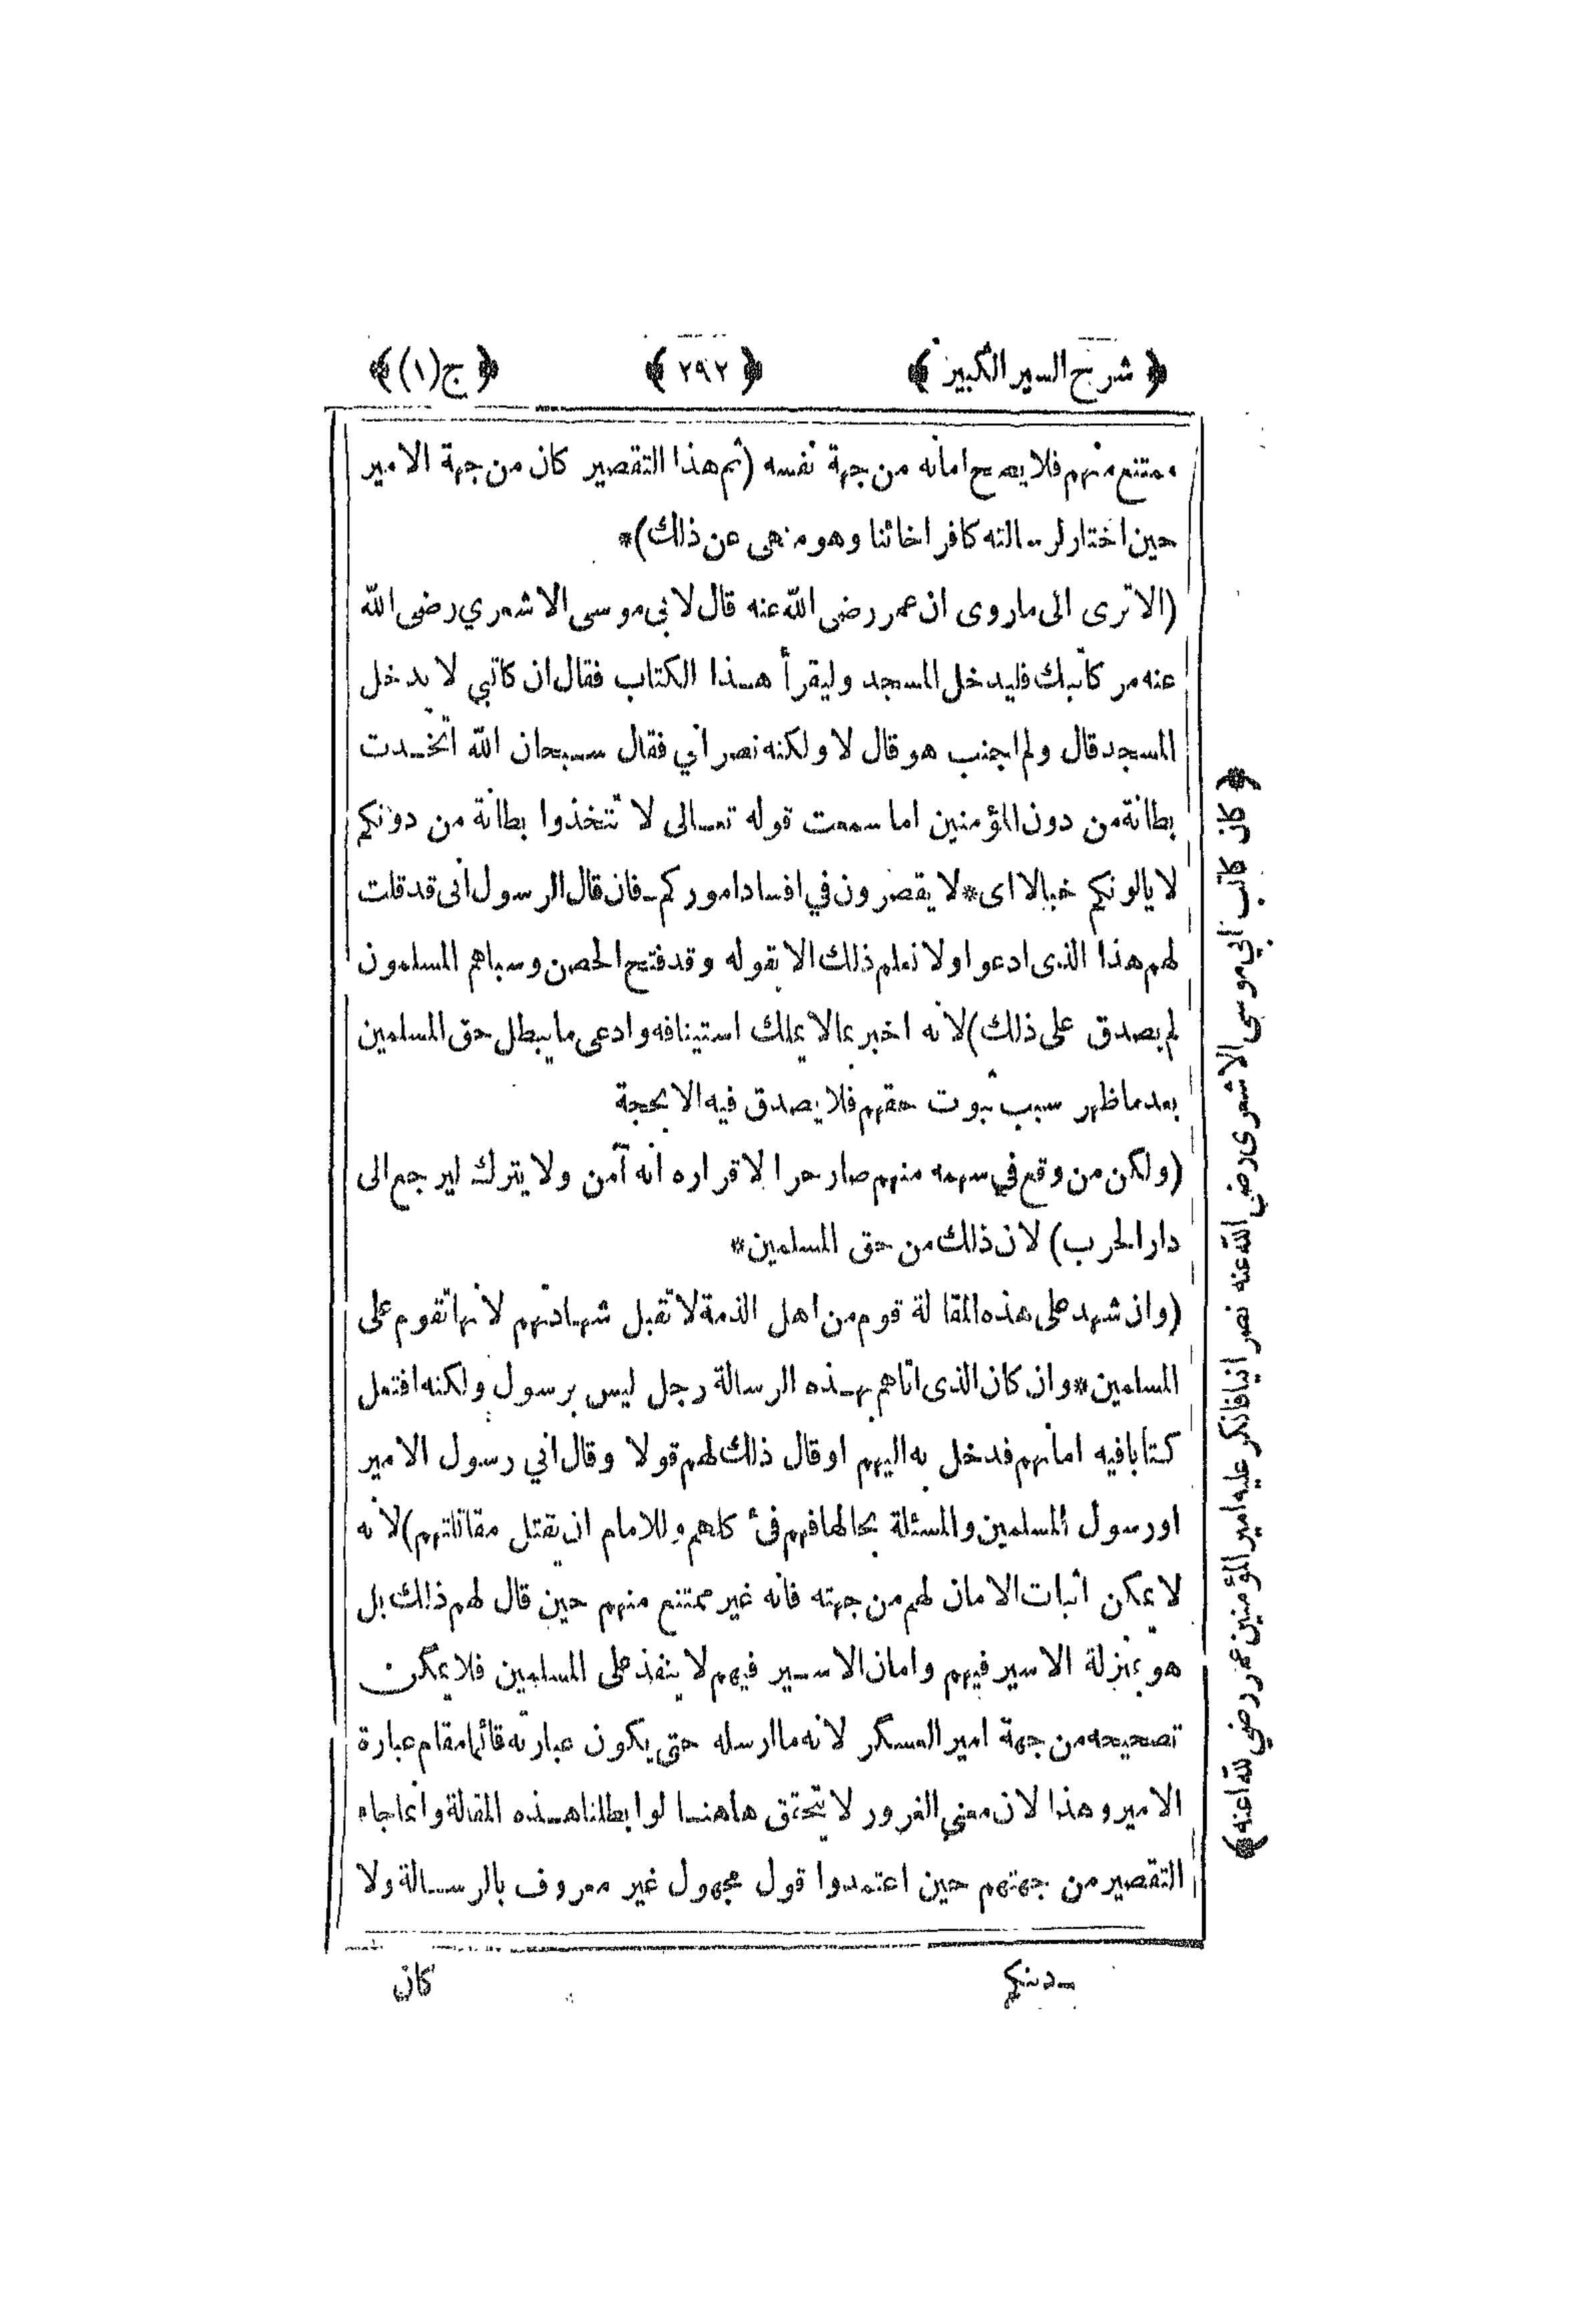 ﴿ شرح السير الكبير ﴾ ﴿ ٢٩٢ ﴾ ﴿ ج (١) ﴾
ممتنع منهم فلا يصح امانه من جهة نفسه (ثم هذا التقصير كان من جهة الامير
حين اختار لرسالته كافرا خائنا وهو منهى عن ذلك)*
(الا ترى الى ما روى ان عمر رضى الله عنه قال لابي موسى الاشعري رضى الله
عنه مر كاتبك فليدخل المسجد وليقرأ هذا الكتاب فقال ان كاتبي لا يدخل
المسجد قال ولم اجنب هو قال لا ولكنه نصراني فقال سبحان الله اتخذت
بطانة من دون المؤمنين اما سمعت قوله تعالى لا تتخذوا بطانة من دونكم
لا يالونكم خبالا اى* لا يقصرون في افساد اموركم ـ فان قال الرسول انى قد قلت
لهم هذا الذى ادعوا ولا نعلم ذلك الا بقوله وقد فتح الحصن وسباهم المسلمون
لم يصدق على ذلك) لانه اخبر بما لا يملك استينافه وادعى ما يبطل حق المسلمين
بعد ما ظهر سبب ثبوت حقهم فلا يصدق فيه الا بحجة
(ولكن من وقع في سهمه منهم صار حرا لاقراره انه آمن ولا يترك ليرجع الى
دار الحرب) لان ذلك من حق المسلمين*
(وان شهد على هذه المقالة قوم من اهل الذمة لا تقبل شهادتهم لانها تقوم على
المسلمين* وان كان الذى اتاهم بهذه الرسالة رجل ليس برسول ولكنه افتعل
كتابا فيه امانهم فدخل به اليهم او قال ذلك لهم قولا وقال اني رسول الامير
او رسول المسلمين والمسئلة بحالها فهم فئ كلهم وللامام ان يقتل مقاتلتهم) لانه
لا يمكن اثبات الامان لهم من جهته فانه غير ممتنع منهم حين قال لهم ذلك بل
هو بمنزلة الاسير فيهم وامان الاسير فيهم لا ينفذ على المسلمين فلا يمكن
تصحيحه من جهة امير العسكر لانه ما ارسله حتى يكون عبارته قائما مقام عبارة
الامير وهذا لان معنى الغرور لا يتحقق هاهنا لو ابطلنا هذه المقالة وانما جاء
التقصير من جهتهم حين اعتمدوا قول مجهول غير معروف بالرسالة ولا
كان
﴿ كان كاتب ابي موسى الاشعرى رضي الله عنه نصرانيا فانكر عليه امير المؤمنين عمر رضي لله اعنه ﴾